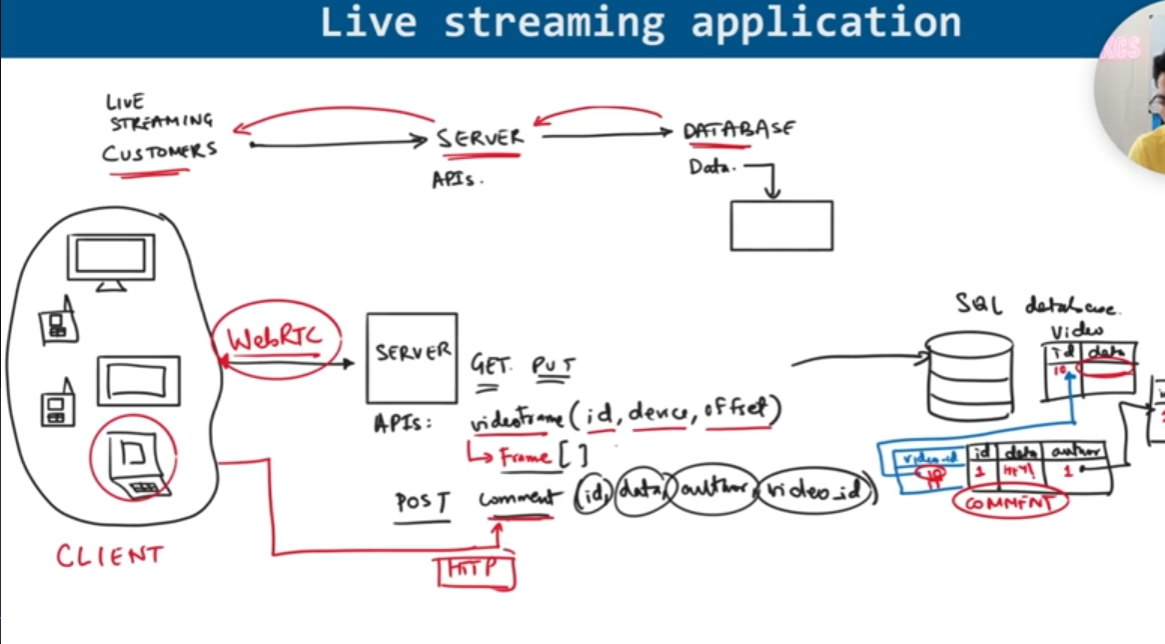 Live streaming application
KCS
LIVE
STREAMING
CUSTOMERS
SERVER
APIs.
DATABASE
Data.
WebRTC
SERVER
GET PUT
APIs: videoframe (id, device, offset)
Frame []
POST comment (id, data, author, video_id)
HTTP
CLIENT
SQL database.
Video
id data
10
video-id id data author
10 1 HEY! 1
COMMENT